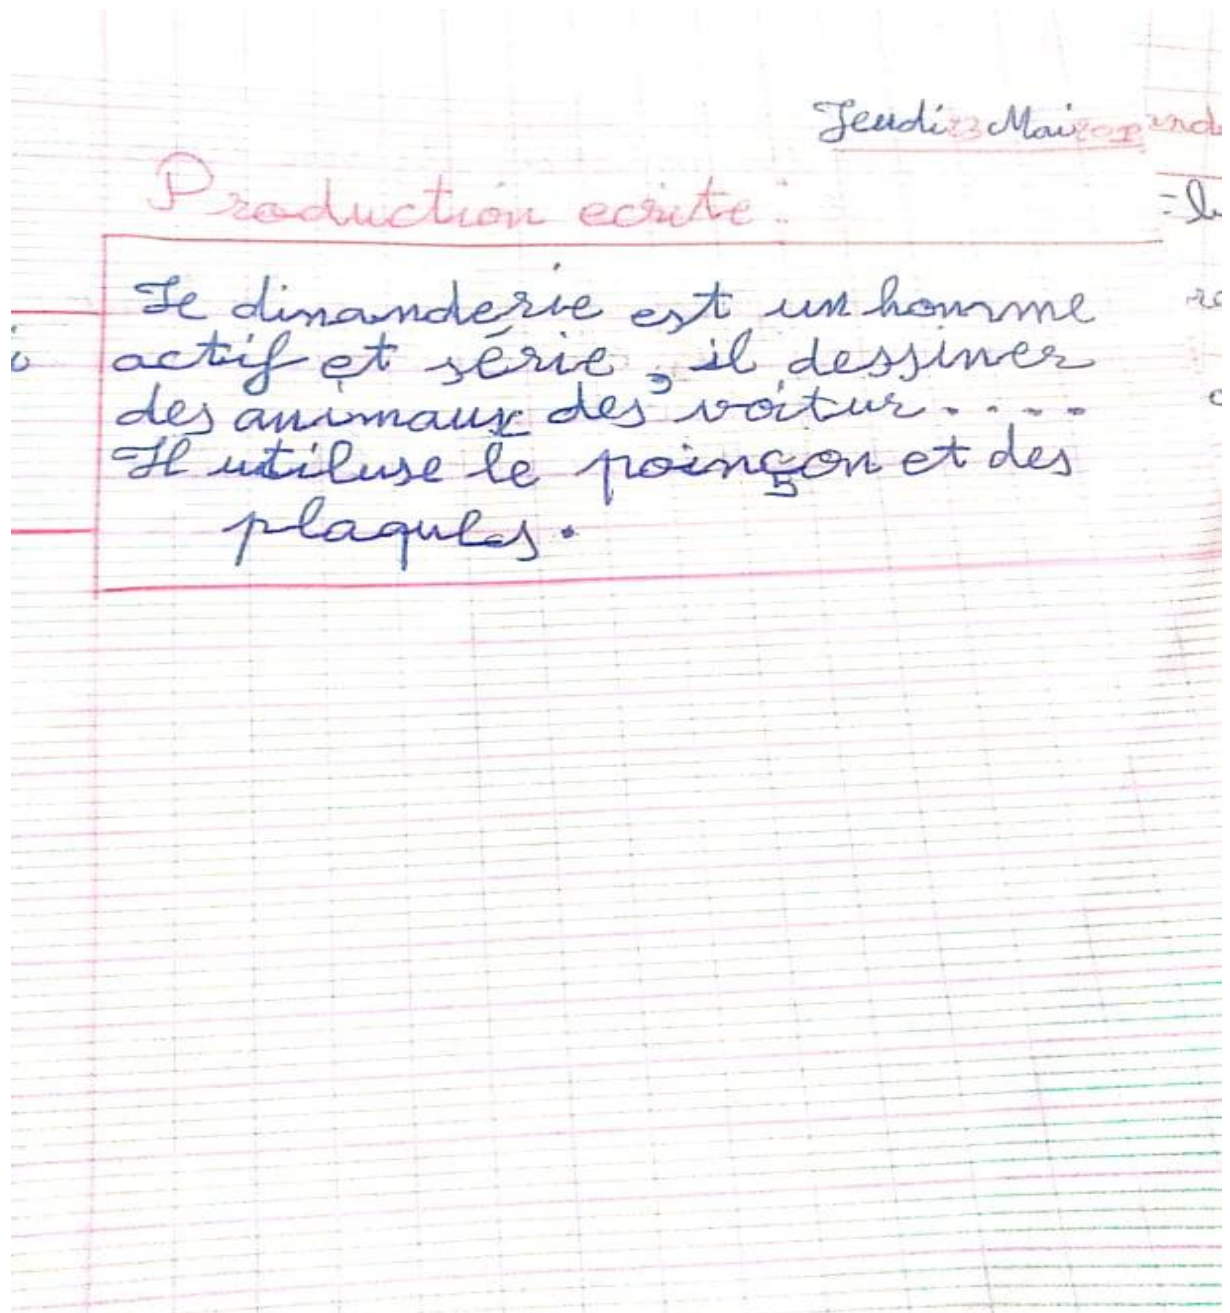 Jeudi 23 Mai
Production ecrite :
Le dinanderie est un homme
actif et série, il dessiner
des animaux des voitur....
Il utiluse le poinçon et des
plaques.